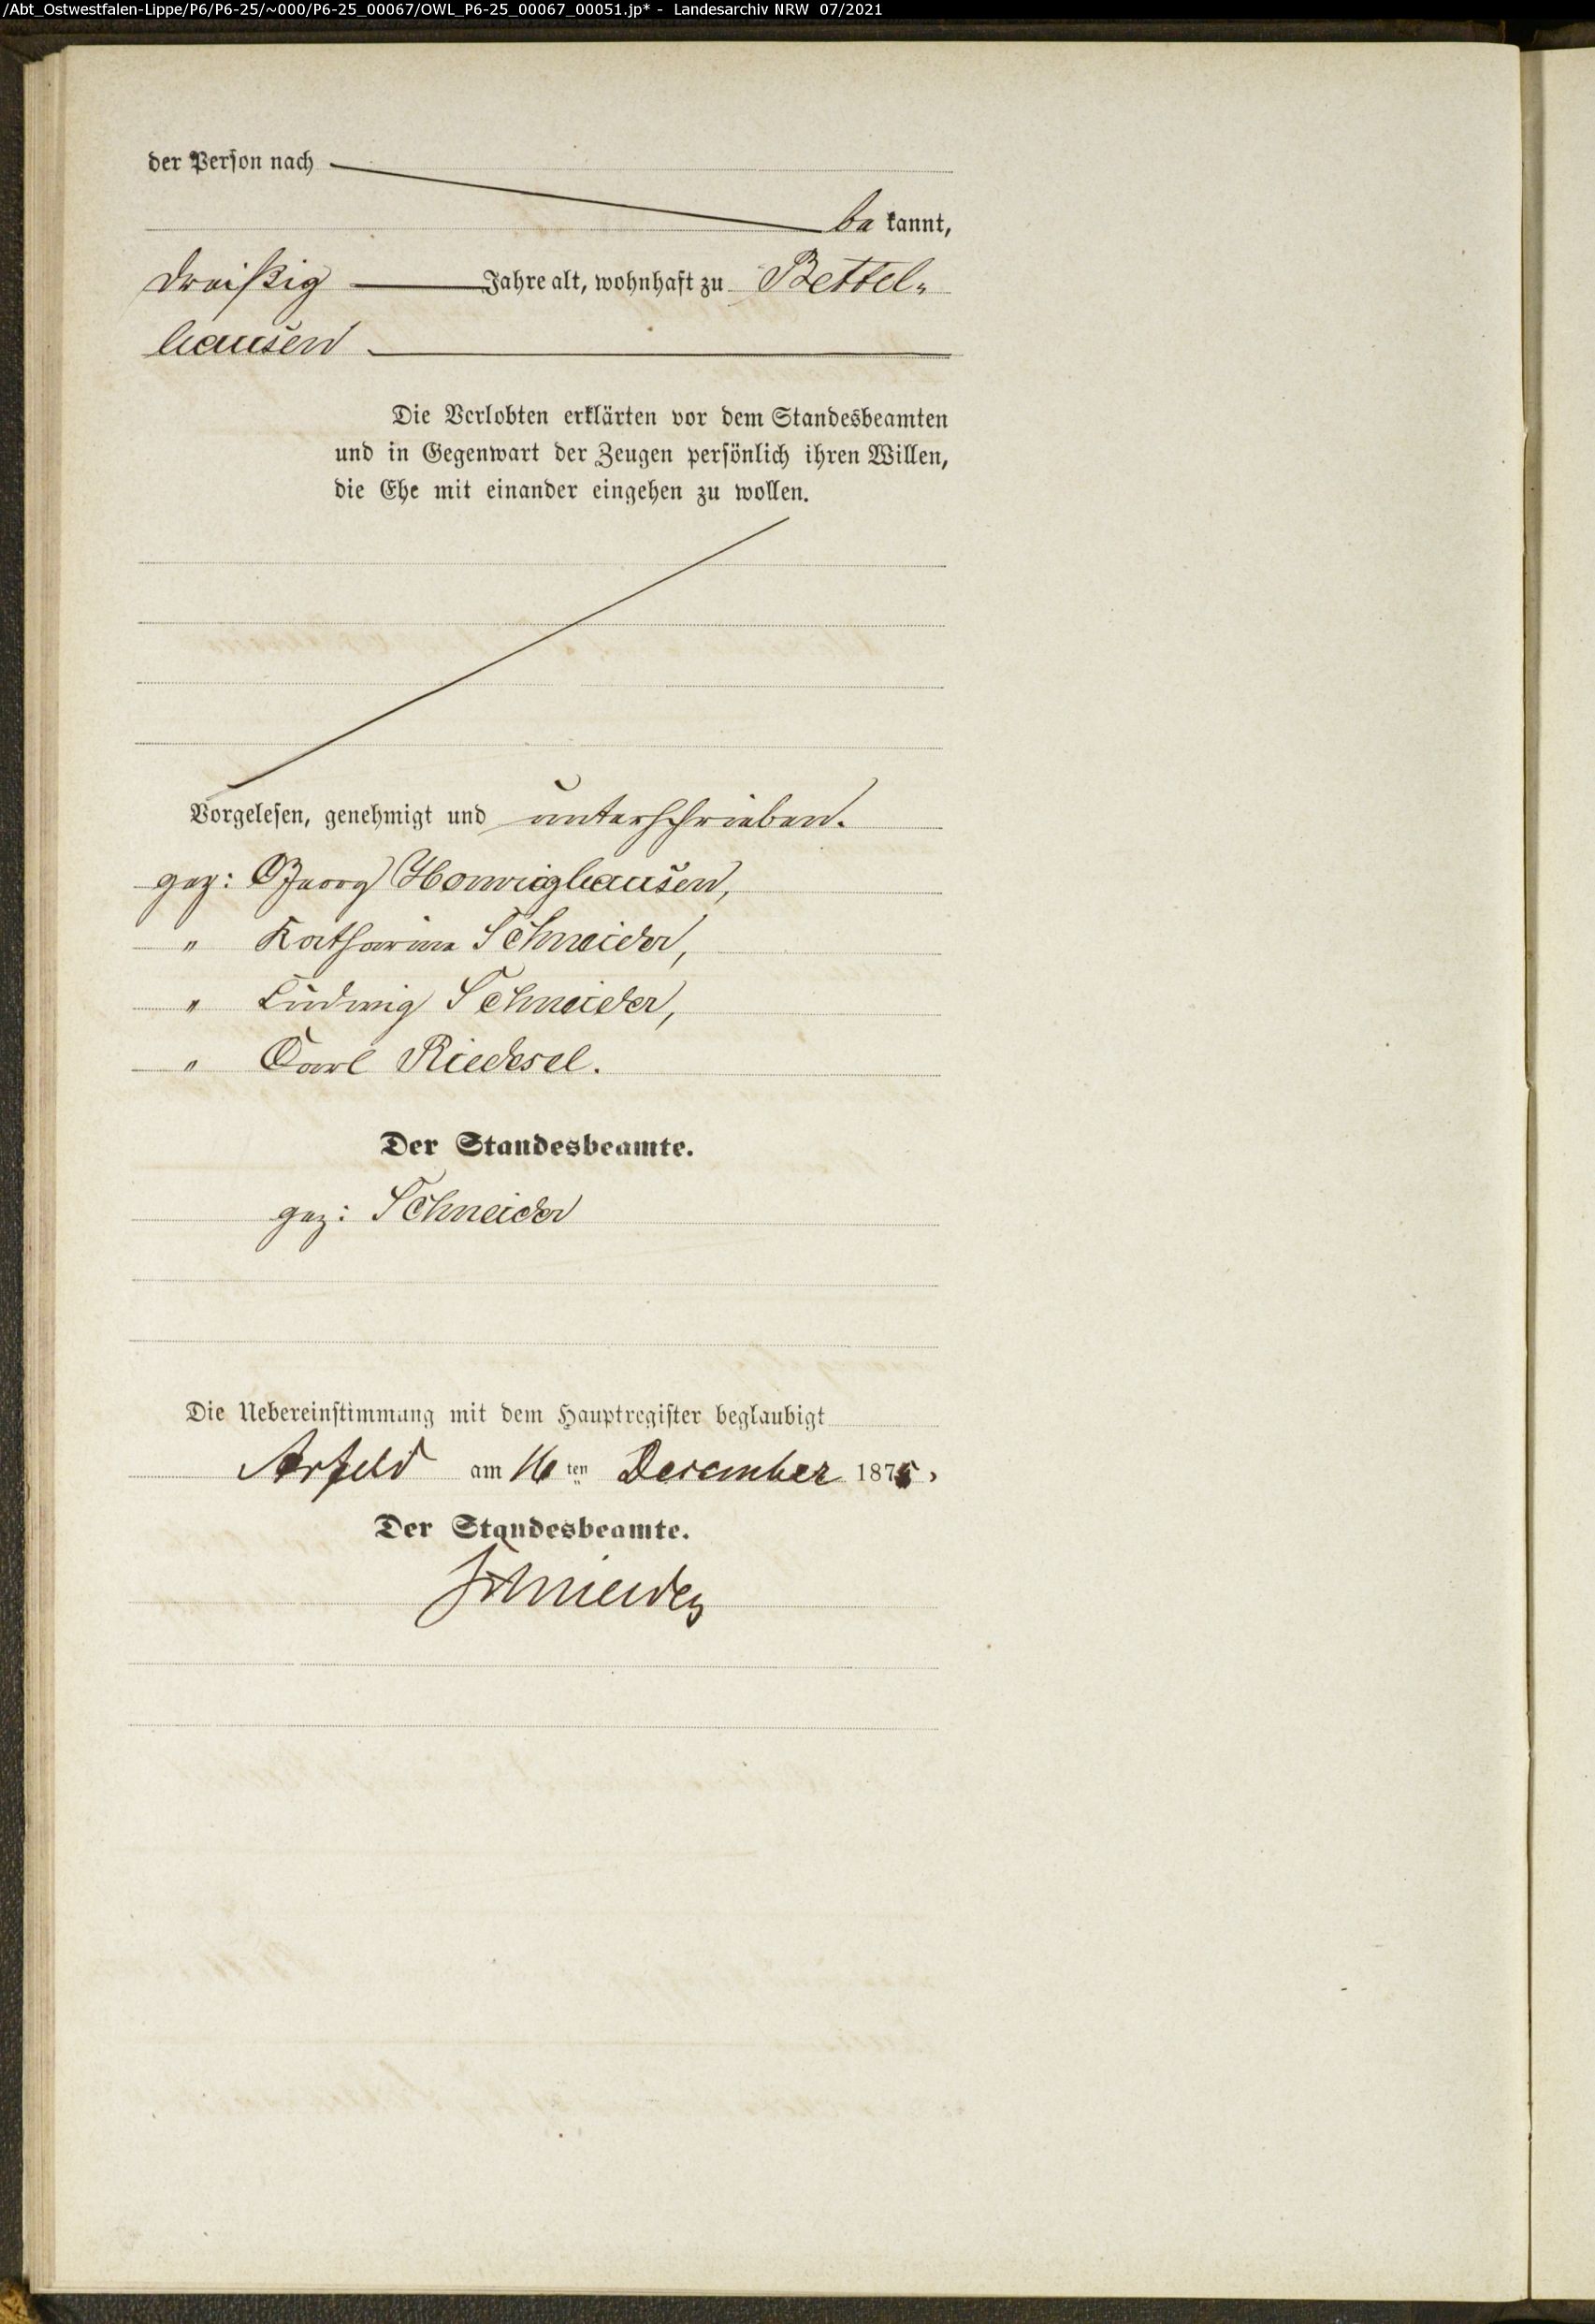 /Abt_Ostwestfalen-Lippe/P6/P6-25/~000/P6-25_00067/OWL_P6-25_00067_00051.jp* - Landesarchiv NRW 07/2021
der Person nach
be kannt,
dreißig Jahre alt, wohnhaft zu Bettel-
hausen
Die Verlobten erklärten vor dem Standesbeamten
und in Gegenwart der Zeugen persönlich ihren Willen,
die Ehe mit einander eingehen zu wollen.
Vorgelesen, genehmigt und unterschrieben.
gez: Georg Hornighausen,
" Katharina Schneider,
" Ludwig Schneider,
" Carl Riedesel.
Der Standesbeamte.
gez: Schneider
Die Uebereinstimmung mit dem Hauptregister beglaubigt
Arfeld am 16 ten December 1875.
Der Standesbeamte.
Schneider